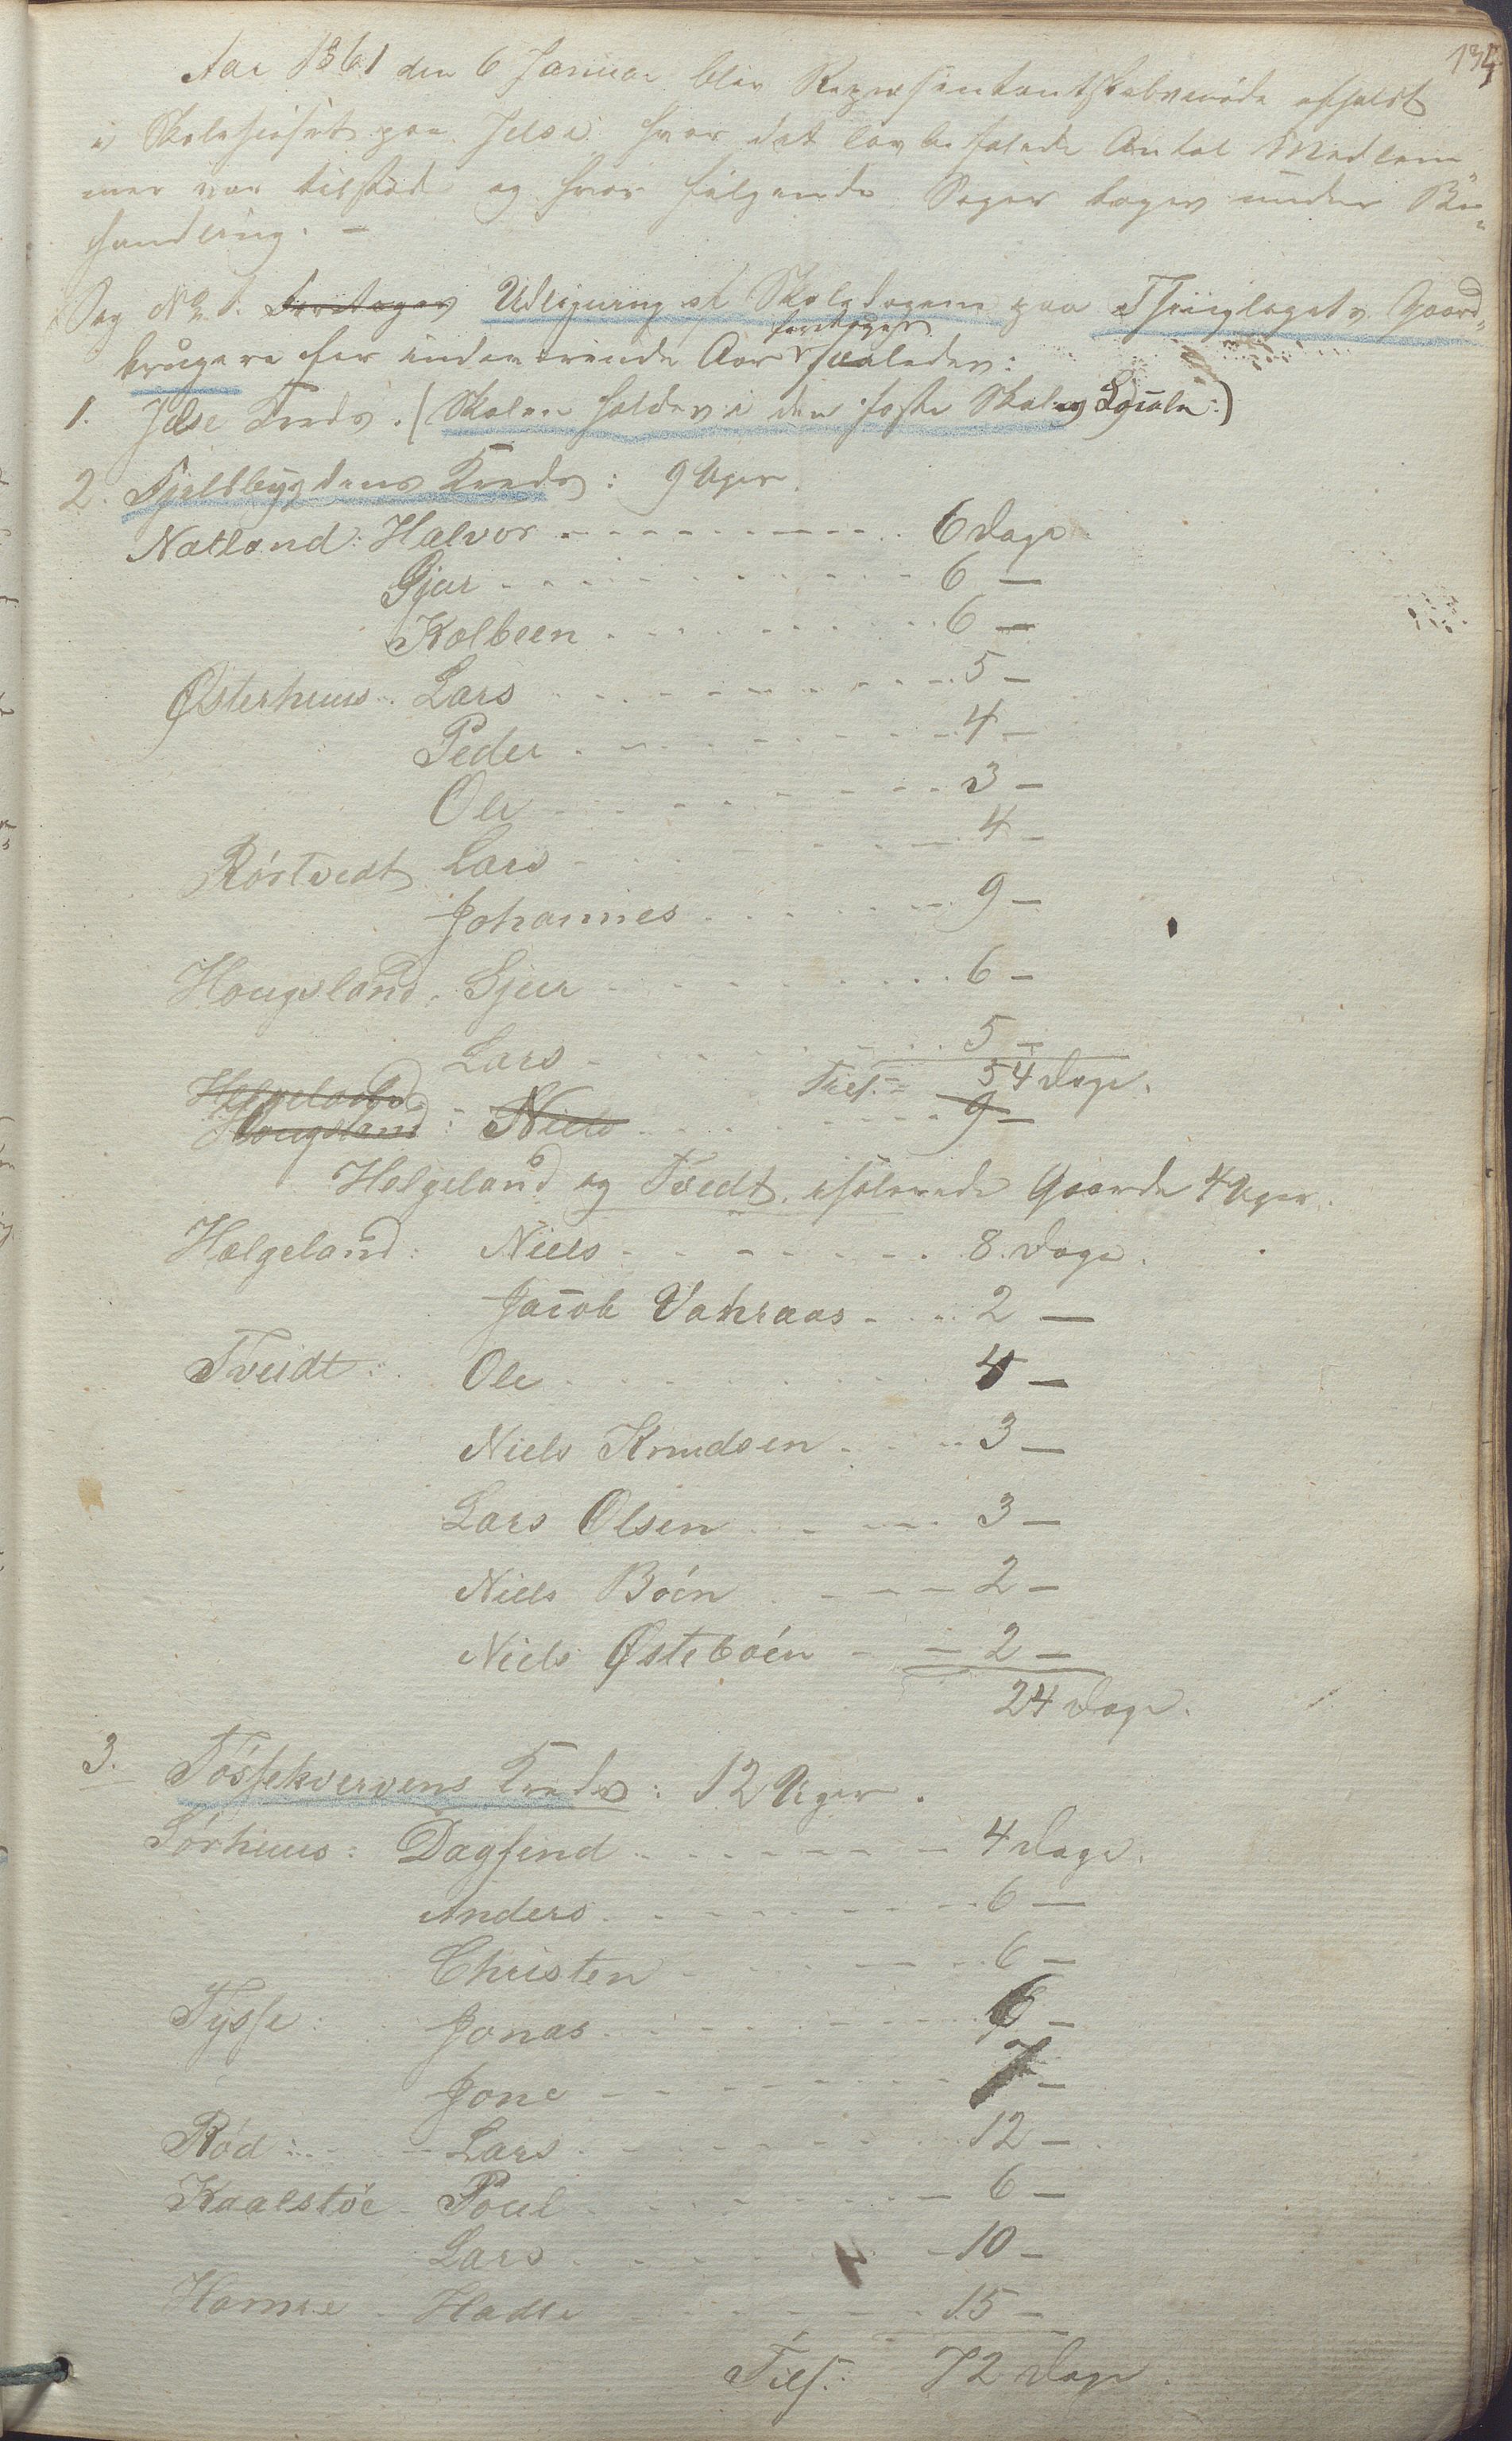 134
Aar 1861 den 6 Januar blev Repræsentantskabsmöde afholdt
i Skolehuset paa Jelse hvor det lovbefalede Antal Medlem-
mer var tilstæde og hvor følgende Sager toges under Be-
handling. –
Sag No 1. Foretages Udligning af Skoledagene paa Thinglagets Gaard-
foretoges
brugere for indeværende Aar saaledes:
1. Jelse Kreds. (Skolen holdes i den faste Skoles Locale.)
2. Fjeldbygdens Kreds: 9 Uger.
Natland: Halvor - - - 6 Dage
Sjur - - - 6 –
Kolbeen - - - 6 –
Østerhuus. Lars - - - 5 –
Peder - - - 4 –
Ole - - - 3 –
Rörtvedt Lars - - - 4 –
Johannes - - - 9 –
Hougsland. Sjur - - - 6 –
Lars - - - 5 –
Tils. 54 Dage.
Helgeland
Hougsland: Niels - - - 9 –
Helgeland og Tvedt, isolerede Gaarde 4 Uger.
Helgeland: Niels - - - 8 Dage.
Jacob Vahraas - - - 2 –
Tveidt: Ole - - - 4 –
Niels Knudsen - - - 3 –
Lars Olsen - - - 3 –
Niels Böen - - - 2 –
Niels Østeböen - - - 2 –
24 Dage.
3. Tössekvervens Kreds: 12 Uger.
Sörhuus: Dagfind - - - 4 Dage.
Anders - - - 6 –
Christen - - - 6 –
Tysse: Jonas - - - 6 –
Jone - - - 7 –
Röd: Lars - - - 12 –
Kaalstöe - Poul - - - 6 –
Lars - - - 10 –
Hamre - Hadle - - - 15 –
Tils: 72 Dage.